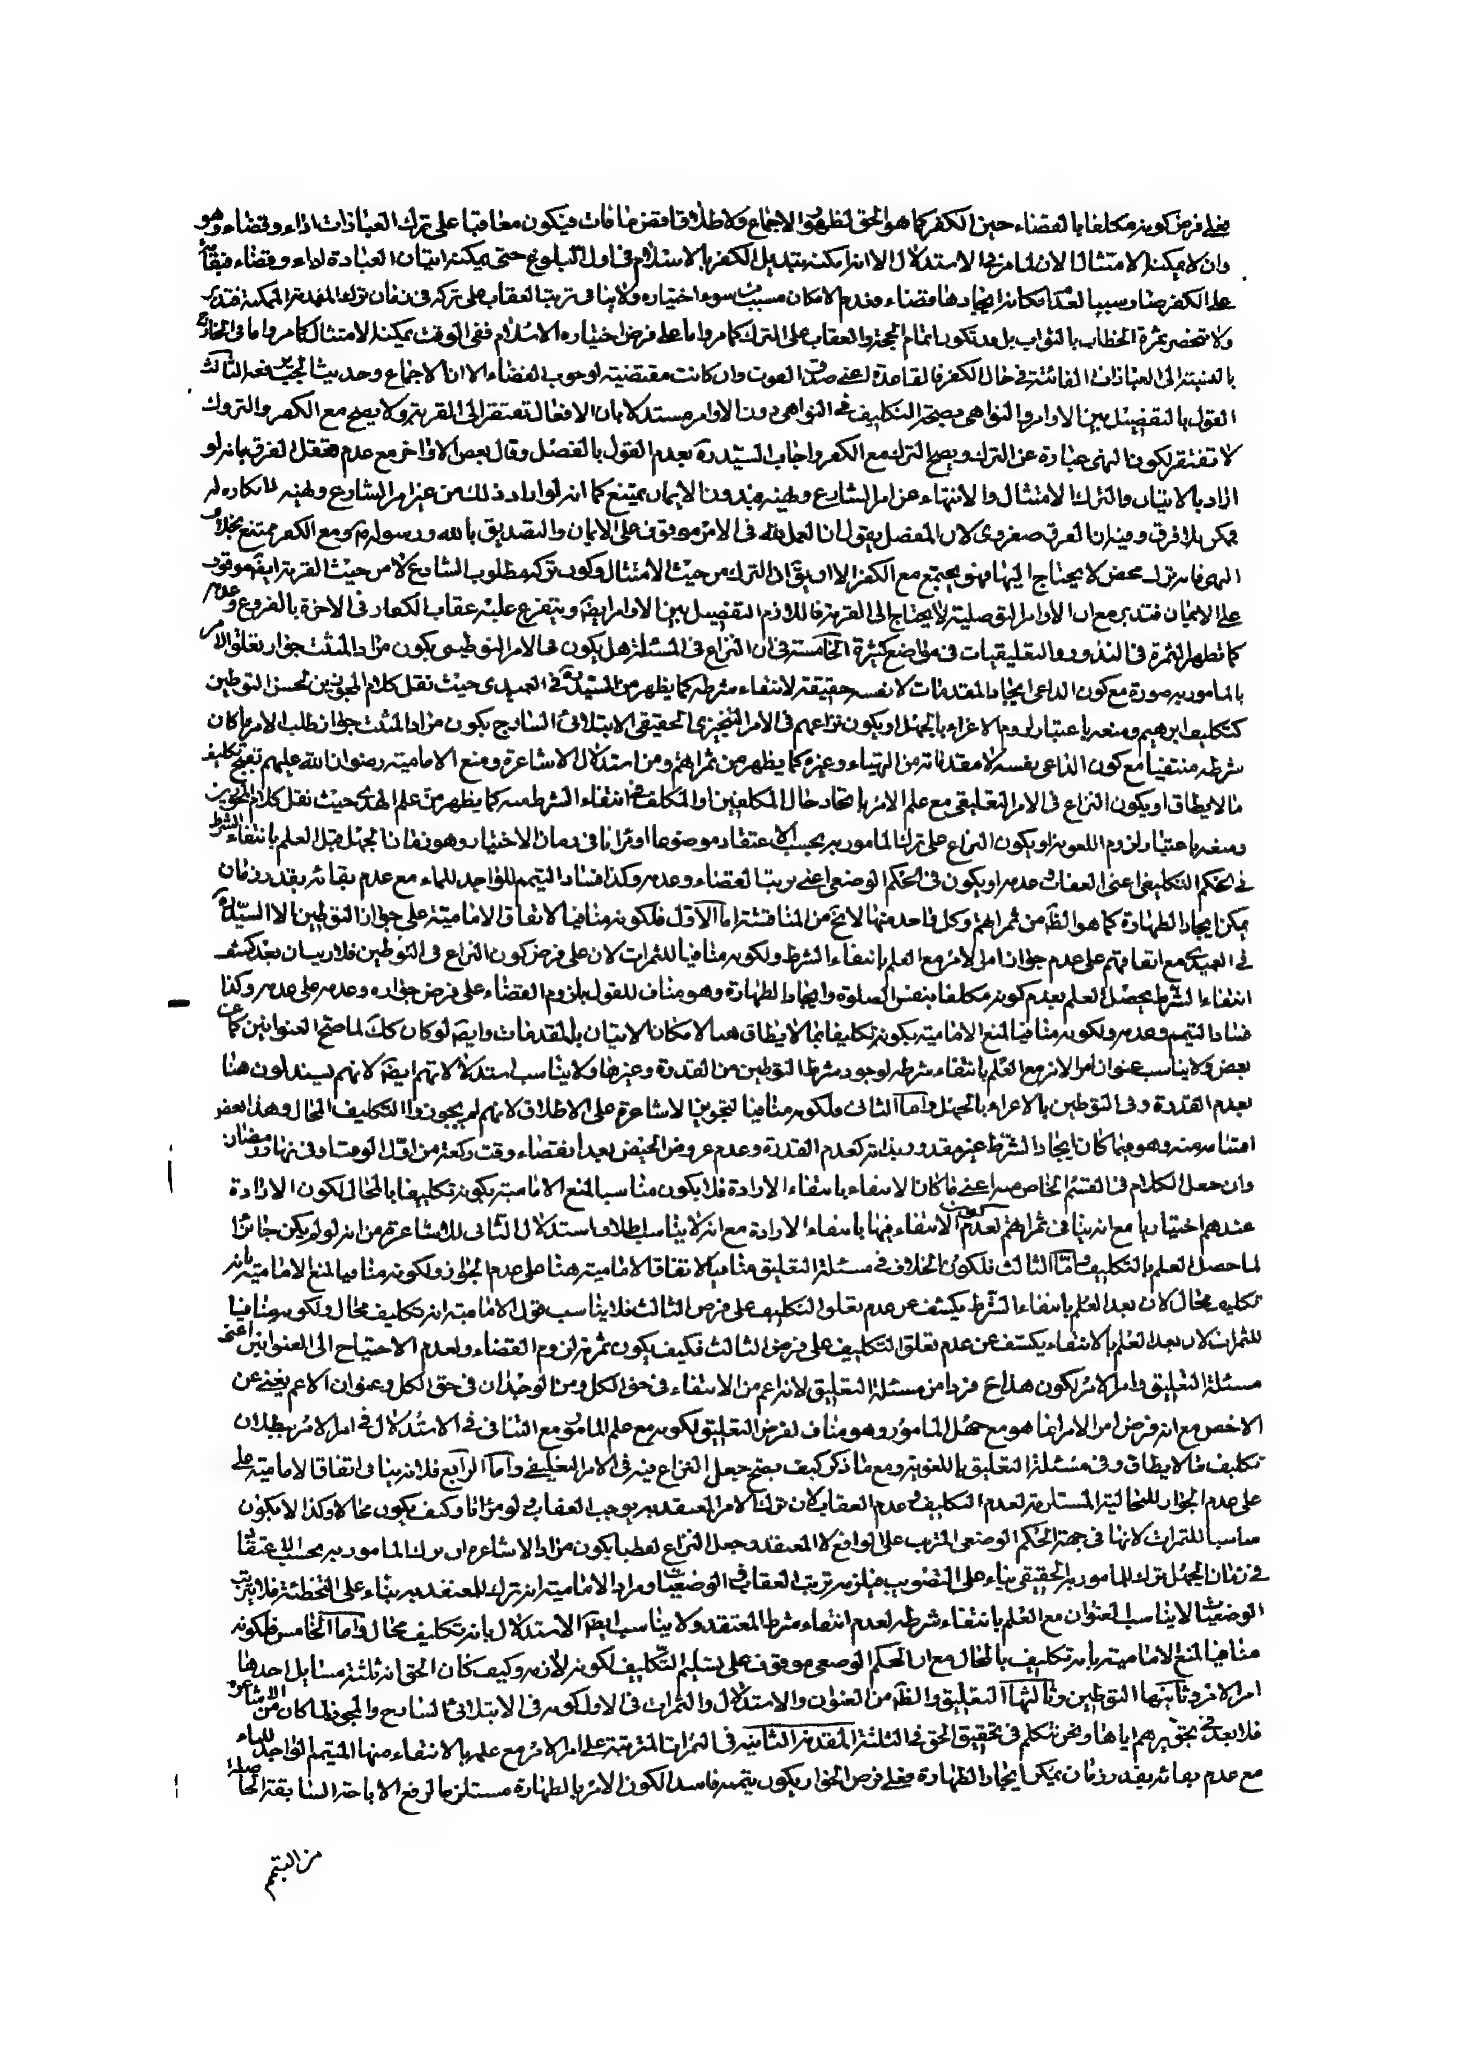 فعلى فرض كونه مكلفا بالقضاء حين الكفر كما هو الحق لظهور الاجماع ولاطلاق اقض ما فات فيكون معاقبا على ترك العبادات اداء وقضاء وهو
وان لا يمكنه الامتثال الان لما مر في الاستدلال الا انه امكنه بتبديل الكفر بالاسلام في اول البلوغ حتى يمكنه اتيان العبادة اداء وقضاء فبقائه
على الكفر صار سببا لعدم امكانه ايجادها قضاء فعدم الامكان مسبب من سوء اختياره ولا ينافي ترتب العقاب على تركه في زمان ترك المقدمة الممكنة فتدبر
ولا تنحصر ثمرة الخطاب بالثواب بل قد تكون اتمام الحجة والعقاب على الترك كما مر واما على فرض اختياره الاسلام ففي الوقت يمكنه الامتثال كما مر واما في الخارج
بالنسبة الى العبادات الفائتة في حال الكفر فالقاعدة اعني صدق الفوت وان كانت مقتضية لوجوب القضاء الا ان الاجماع وحديث الجب يرفعه الثالث
القول بالتفصيل بين الاوامر والنواهي فيصح التكليف في النواهي دون الاوامر مستدلا بان الافعال تفتقر الى القربة ولا يصح مع الكفر والتروك
لا تفتقر لكون النهي عبارة عن الترك ويصح الترك مع الكفر واجاب السيد ره بعدم القول بالفصل وقال بعض الاواخر مع عدم تعقل الفرق بانه لو
اراد بالاتيان والترك الامتثال والانتهاء عن امر الشارع ونهيه فبدون الايمان يمتنع كما انه لو اراد ذلك من غير امر الشارع ونهيه لانكاره له
فممكن بلا فرق وفيه ان الفرق ضروري لان المفصل يقول ان العمل لله في الامر موقوف على الايمان والتصديق بالله ورسوله ص ومع الكفر ممتنع بخلاف
النهي فانه ترك محض لا يحتاج اليها فهو يجتمع مع الكفر الا ان يق ان الترك من حيث الامتثال وكون تركه مطلوب الشارع لا من حيث القربة ايضا موقوف
على الايمان فتدبر مع ان الاوامر التوصلية لا يحتاج الى القربة فاللازم التفصيل بين الاوامر ايضا ويتفرع عليه عقاب الكفار في الاخرة بالفروع وعدمه
كما تظهر الثمرة في النذور والتعليقيات في مواضع كثيرة الخامسة في ان النزاع في المسئلة هل يكون في الامر التوطيني بكون مراد المثبت جواز تعلق الامر
بالمأمور به صورة مع كون الداعي ايجاد المقدمات لا نفسه حقيقة لانتفاء شرطه كما يظهر من السيد ره في العميدي حيث نقل كلام المجوزين لحسن التوطين
كتكليف ابرهيم ومنعه باعتبار لزوم الاغراء بالجهل او يكون نزاعهم في الامر التنجيزي الحقيقي الابتلائي الساذج بكون مراد المثبت جواز طلب الامر ما كان
شرطه منتفيا مع كون الداعي نفسه لا مقدماته من التهياء وغيره كما يظهر من ثمراتهم ومن استدلال الاشاعرة ومنع الامامية رضوان الله عليهم بقبح تكليف
ما لا يطاق او يكون النزاع في الامر التعليقي مع علم الامر باتحاد حال المكلفين او المكلف في انتفاء الشرط كما يظهر من علم الهدى حيث نقل كلام المجوزين
ومنعه باعتبار لزوم اللغوية او يكون النزاع على ترك المأمور به بحسب الاعتقاد موضوعا او مرادا في زمان الاختيار وهو زمان الجهل قبل العلم بانتفاء الشرط
في الحكم التكليفي اعني العقاب وعدمه او يكون في الحكم الوضعي اعني ترتب القضاء وعدمه وكذا فساد التيمم للواجد للماء مع عدم بقائه بقدر زمان
يمكن ايجاد الطهارة كما هو الظ من ثمراتهم وكل واحد منها لا يخ من المناقشة اما الاول فلكونه منافيا لاتفاق الامامية على جواز التوطين الا السيد ره
في العميدي مع اتفاقهم على عدم جواز امر الامر مع العلم بانتفاء الشرط ولكونه منافيا للثمرات لان على فرض كون النزاع في التوطين فلا ريب ان بعد كشف
انتفاء الشرط يحصل العلم بعدم كونه مكلفا بنفس الصلوة وايجاد الطهارة وهو مناف للقول بلزوم القضاء على فرض جوازه وعدمه على عدمه وكذا
فساد التيمم وعدمه ولكونه منافيا لمنع الامامية بكونه تكليفا بما لا يطاق هنا لامكان الاتيان بالمقدمات وايضا لو كان كك لما صح العنوانين كما عن
بعض ولا يناسب عنوان امر الامر مع العلم بانتفاء شرطه لوجود شرط التوطين من القدرة وغيرها ولا يناسب استدلالاتهم ايضا لانهم يستدلون هنا
بعدم القدرة وفي التوطين بالاغراء بالجهل واما الثاني فلكونه منافيا لتجويز الاشاعرة على الاطلاق لانهم لم يجوزوا التكليف المحال وهذا بعض
اقسامه منه وهو فيما كان ايجاد الشرط غير مقدور بذاته كعدم القدرة وعدم عروض الحيض بعد انقضاء وقت ركعة من اول الوقت او في نهار رمضان
وان جعل الكلام في القسم الخاص منه اعني ما كان الانتفاء بانتفاء الارادة فلا يكون مناسبا لمنع الامامية بكونه تكليفا بالمحال لكون الارادة
عندهم اختياريا مع انه ينافي ثمراتهم لعدم كون الانتفاء فيها بانتفاء الارادة مع انه لا يناسب اطلاق استدلال الثاني للاشاعرة من انه لو لم يكن جائزا
لما حصل العلم بالتكليف واما الثالث فلكون الخلاف في مسئلة التعليق منافيا لاتفاق الامامية هنا على عدم الجواز ولكونه منافيا لمنع الامامية بانه
تكليف محال لان بعد العلم بانتفاء الشرط يكشف عن عدم تعلق التكليف على فرض الثالث فلا يناسب قول الامامية انه تكليف محال ولكونه منافيا
للثمرات لان بعد العلم بالانتفاء يكشف عن عدم تعلق التكليف على فرض الثالث فكيف يكون ثمرته لزوم القضاء ولعدم الاحتياج الى العنوانين اعني
مسئلة التعليق وامر الامر لكون هذا فردا من مسئلة التعليق لانه اعم من الانتفاء في حق الكل ومن الوجدان في حق الكل وعنوان الاعم يغني عن
الاخص مع انه فرض امر الامر انما هو مع جهل المأمور وهو مناف لفرض التعليق لكونه مع علم المأمور مع التنافي في الاستدلال في امر الامر ببطلان
تكليف ما لا يطاق وفي مسئلة التعليق باللغوية ومع ما ذكر كيف يصح جعل النزاع فيه في الامر التعليقي واما الرابع فلانه ينافي اتفاق الامامية على
على عدم الجواز للمحالية المستلزمة لعدم التكليف وعدم العقاب لان ترك الامر المعتقد به يوجب العقاب وكيف يكون محالا وكذا لا يكون
مناسبا للثمرات لانها في جهة الحكم الوضعي المترتب على الواقع لا المعتقد وجعل النزاع لفظيا بكون مراد الاشاعرة ان ترك المأمور به بحسب الاعتقاد
في زمان الجهل ترك المأمور به الحقيقي بناء على التصويب فيلزمه ترتب العقاب والوضعيات ومراد الامامية انه ترك للمعتقد به بناء على التخطئة فلا يترتب
الوضعيات لا يناسب العنوان مع العلم بانتفاء شرطه لعدم انتفاء شرط المعتقد ولا يناسب ايضا الاستدلال بانه تكليف محال واما الخامس فلكونه
منافيا لمنع الامامية بانه تكليف بالمحال مع ان الحكم الوضعي موقوف على تسليم التكليف لكونه لازمه وكيف كان الحق انه ثلثة مسايل احدها
امر الامر وثانيتها التوطين وثالثها التعليق والظ من العنوان والاستدلال والثمرات في الاول كونه في الابتلائي الساذج والمجوز لما كان من الاشاعرة
فلا بعد في تجويزهم اياها ونحن نتكلم في تحقيق الحق في الثلثة المقدمة الثانية في الثمرات المترتبة على امر الامر مع علمه بالانتفاء منها المتيمم الواجد للماء
مع عدم بقائه بقدر زمان يمكن ايجاد الطهارة فعلى فرض الجواز يكون تيممه فاسدا لكون الامر بالطهارة مستلزما لرفع الاباحة السابقة الحاصلة
من التيمم